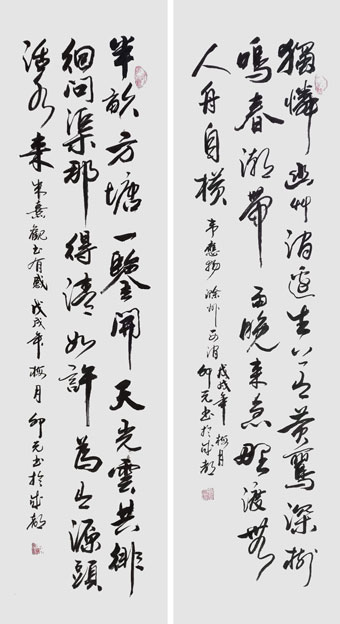 獨憐幽艸澗邊生上有黄鸝深樹
鳴春潮帶雨晚來急野渡無
人舟自橫
韋應物滁州西澗
戊戌年梅月
卯元书於成都
半畝方塘一鑒開天光雲共徘
徊問渠那得清如許為有源頭
活水來
朱熹觀书有感 戊戌年梅月 卯元书於成都